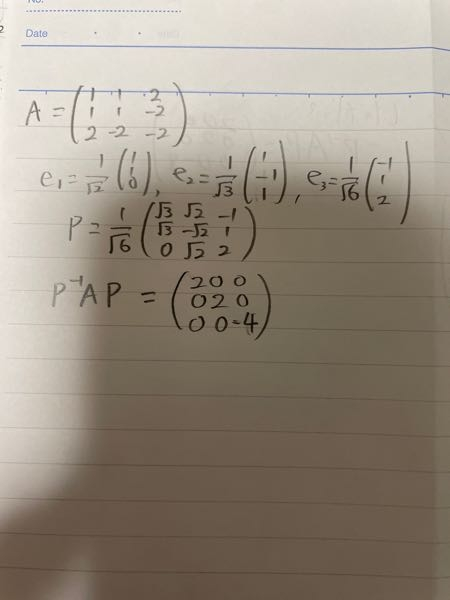 No.
Date
A = (1 1 2 / 1 1 -2 / 2 -2 -2)
e₁ = 1/√2 (1 / 1 / 0), e₂ = 1/√3 (1 / -1 / 1), e₃ = 1/√6 (-1 / 1 / 2)
P = 1/√6 (√3 √2 -1 / √3 -√2 1 / 0 √2 2)
P⁻¹AP = (2 0 0 / 0 2 0 / 0 0 -4)